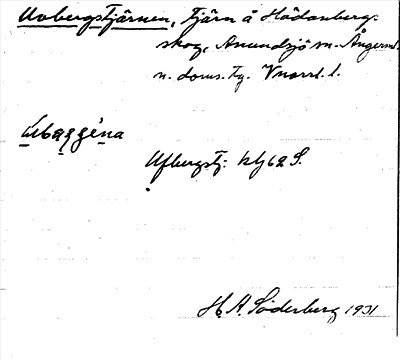 Uvbergstjärnen, Tjärn å Hädanberg-
skog, Anundsjö sn. Ångerml.
n. doms. tg. Vnorrl. l.
Ufbergstj: kbl 62 S.
H. A. Söderberg 1931